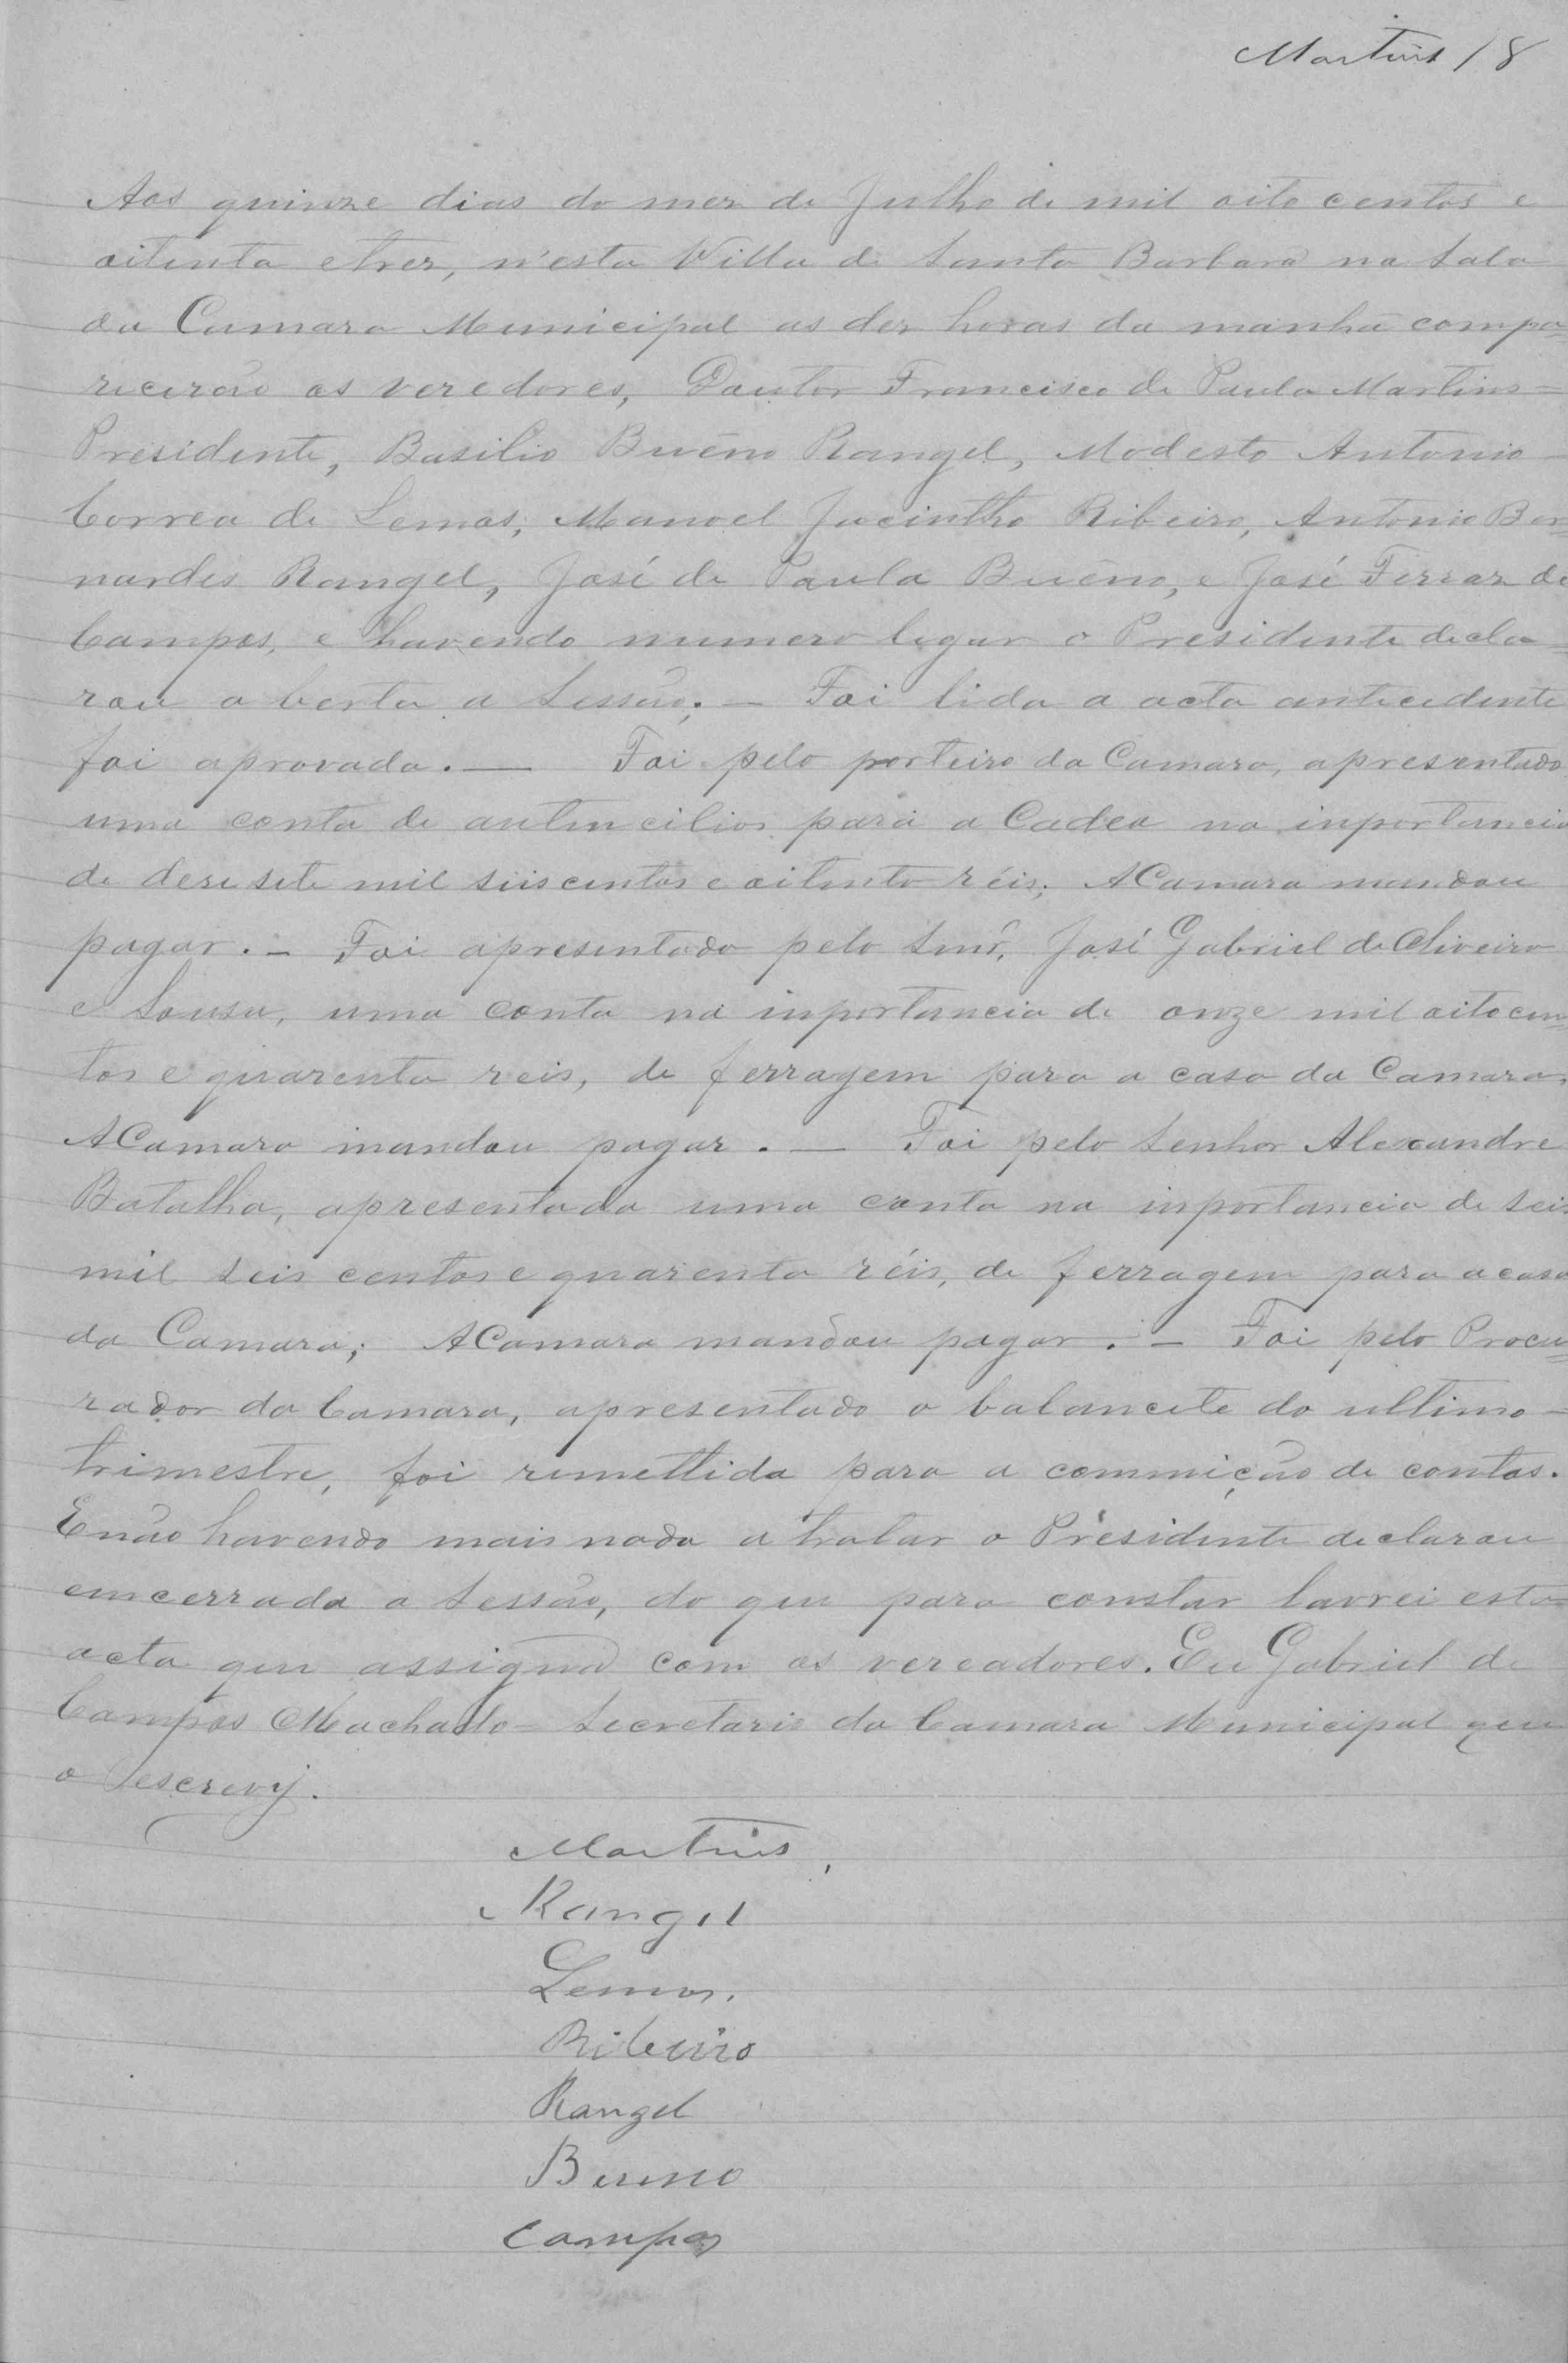 Martins / 8
Aos quinze dias do mez de Julho de mil oito centos e
oitenta e trez, n'esta Villa de Santa Barbara na Sala
da Camara Municipal as dez horas da manhã compa=
recerão os veredores, Doutor Francisco de Paula Martins=
Presidente, Basilio Bueno Rangel, Modesto Antonio
Correa de Lemos, Manoel Jacintho Ribeiro, Antonio Ber=
nardes Rangel, José de Paula Bueno, e José Ferraz de
Campos, e havendo numero legar o Presidente decla=
rou a berta a Sessão; — Foi lida a acta antecedente
foi aprovada. — Foi pelo porteiro da Camara, apresentado
uma conta de autincilios para a Cadea na inportancia
de dese sete mil seiscentos e oitenta réis; A Camara mandou
pagar. — Foi apresentado pelo Snr. José Gabriel de Oliveira
e Sousa, uma conta na inportancia de onze mil oitocen=
tos e quarenta reis, de ferragem para a casa da Camara,
A Camara mandou pagar. — Foi pelo Senhor Alexandre
Batalha, apresentada uma conta na inportancia de seis
mil seis centos e quarenta réis, de ferragem para a casa
da Camara; A Camara mandou pagar. — Foi pelo Procu=
rador da Camara, apresentado o balancete do ultimo=
trimestre, foi remettida para a commição de contas.
E não havendo mais nada a tratar o Presidente declarou
emcerrada a Sessão, do que para constar lavrei esta=
acta que assigna com os vereadores. Eu Gabriel de
Campos Machado= Secretario da Camara Municipal que
o escrevij.
Martins,
Rangel
Lemos.
Ribeiro
Rangel
Bueno
Campos